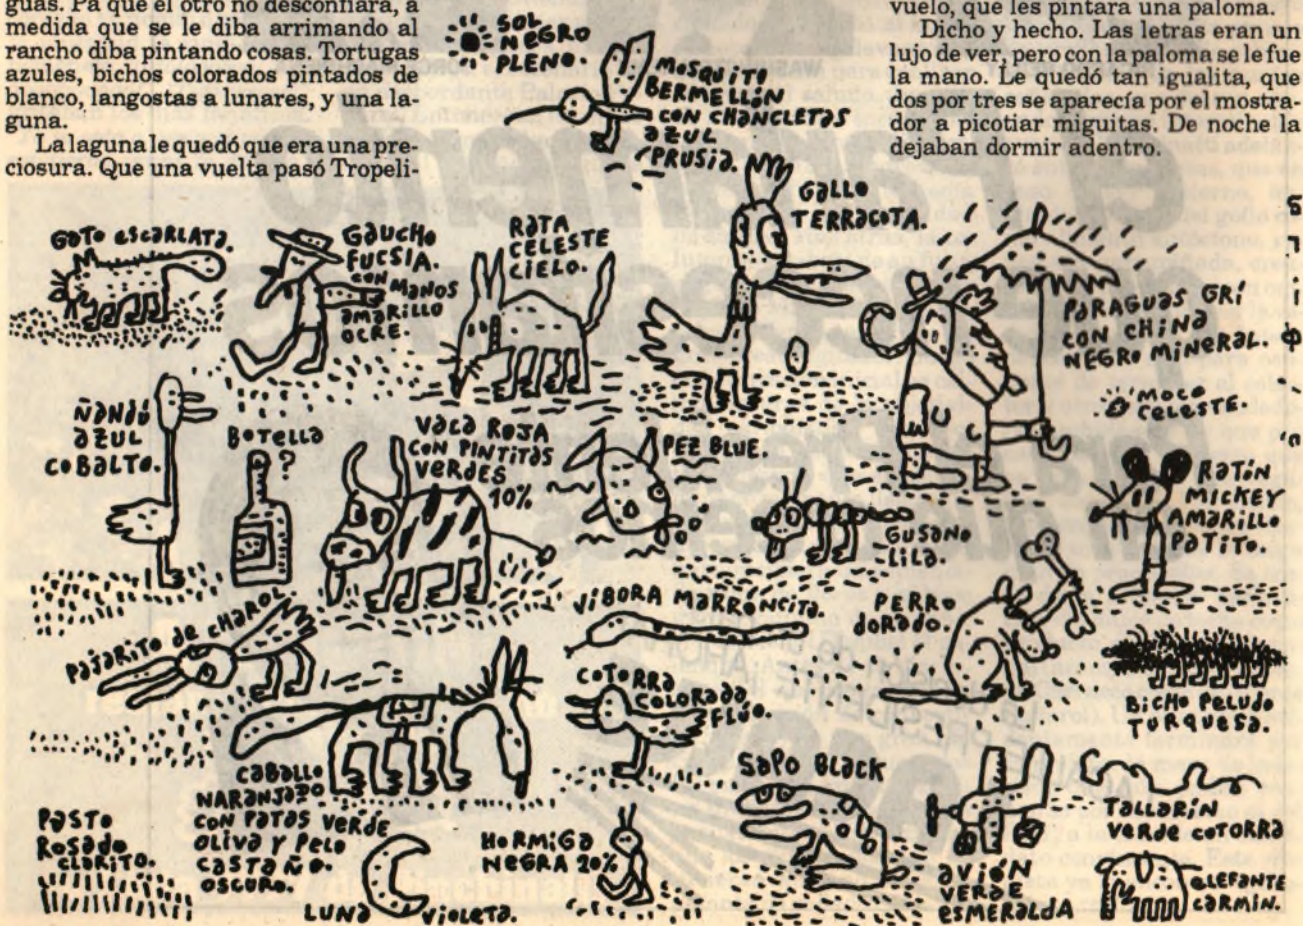 guas. Pa que el otro no desconfiara, a
medida que se le diba arrimando al
rancho diba pintando cosas. Tortugas
azules, bichos colorados pintados de
blanco, langostas a lunares, y una la-
guna.
La laguna le quedó que era una pre-
ciosura. Que una vuelta pasó Tropeli-
vuelo, que les pintara una paloma.
Dicho y hecho. Las letras eran un
lujo de ver, pero con la paloma se le fue
la mano. Le quedó tan igualita, que
dos por tres se aparecía por el mostra-
dor a picotiar miguitas. De noche la
dejaban dormir adentro.
SOL
NEGRO
PLENO.
MOSQUITO
BERMELLÓN
CON CHANCLETAS
AZUL
PRUSIA.
GATO ESCARLATA.
GAUCHO
FUCSIA.
CON MANOS
AMARILLO
OCRE.
RATA
CELESTE
CIELO.
GALLO
TERRACOTA.
PARAGUAS GRÍ
CON CHINA
NEGRO MINERAL.
MOCO
CELESTE.
ÑANDÚ
AZUL
COBALTO.
BOTELLA
?
VACA ROJA
CON PINTITAS
VERDES
10%
PEZ BLUE.
GUSANO
LILA.
RATÍN
MICKEY
AMARILLO
PATITO.
PAJARITO DE CHAROL
VÍBORA MARRONCITA.
PERRO
DORADO.
BICHO PELUDO
TURQUESA.
COTORRA
COLORADA
FLÚO.
CABALLO
NARANJADO
CON PATAS VERDE
OLIVA Y PELO
CASTAÑO.
OSCURO.
SAPO BLACK
TALLARÍN
VERDE COTORRA
PASTO
ROSADO
CLARITO.
LUNA VIOLETA.
HORMIGA
NEGRA 20%
AVIÓN
VERDE
ESMERALDA
ELEFANTE
CARMÍN.